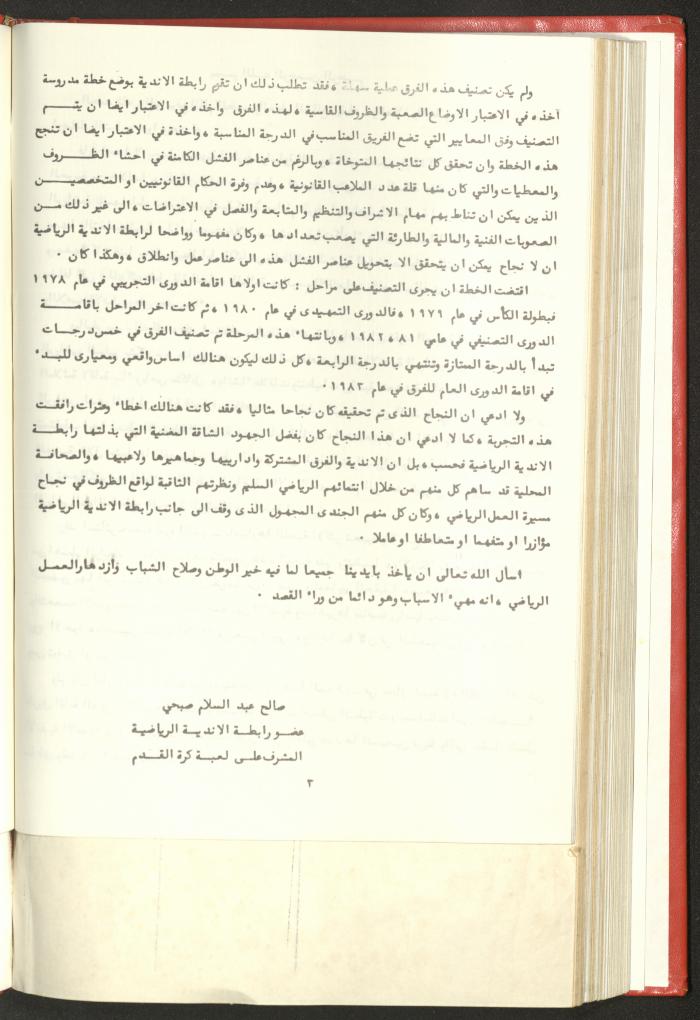 ولم يكن تصنيف هذه الفرق عملية سهلة ، فقد تطلب ذلك ان تقوم رابطة الاندية بوضع خطة مدروسة
آخذه في الاعتبار الاوضاع الصعبة والظروف القاسية لهذه الفرق واخذه في الاعتبار ايضا ان يتم
التصنيف وفق المعايير التي تضع الفريق المناسب في الدرجة المناسبة ، واخذة في الاعتبار ايضا ان تنجح
هذه الخطة وان تحقق كل نتائجها المتوخاة ، وبالرغم من عناصر الفشل الكامنة في احشاء الظروف
والمعطيات والتي كان منها قلة عدد الملاعب القانونية ، وعدم وفرة الحكام القانونيين او المتخصصين
الذين يمكن ان تناط بهم مهام الاشراف والتنظيم والمتابعة والفصل في الاعتراضات ، الى غير ذلك من
الصعوبات الفنية والمالية والطارئة التي يصعب تعدادها ، وكان مفهوما وواضحا لرابطة الاندية الرياضية
ان لا نجاح يمكن ان يتحقق الا بتحويل عناصر الفشل هذه الى عناصر عمل وانطلاق ، وهكذا كان ٠
اقتضت الخطة ان يجرى التصنيف على مراحل : كانت اولاها اقامة الدورى التجريبي في عام ١٩٧٨
فبطولة الكأس في عام ١٩٧٩ ، فالدورى التمهيدى في عام ١٩٨٠ ، ثم كانت اخر المراحل باقامة
الدورى التصنيفي في عامي ٨١ ، ١٩٨٢ ، وبانتهاء هذه المرحلة تم تصنيف الفرق في خمس درجات
تبدأ بالدرجة الممتازة وتنتهي بالدرجة الرابعة ، كل ذلك ليكون هنالك اساس واقعي ومعيارى للبدء
في اقامة الدورى العام للفرق في عام ١٩٨٣٠
ولا ادعي ان النجاح الذى تم تحقيقه كان نجاحا مثاليا ، فقد كانت هنالك اخطاء وعثرات رافقت
هذه التجربة ، كما لا ادعي ان هذا النجاح كان بفضل الجهود الشاقة المضنية التي بذلتها رابطة
الاندية الرياضية فحسب ، بل ان الاندية والفرق المشتركة واداريبها وجماهيرها ولاعبيها ، والصحافة
المحلية قد ساهم كل منهم من خلال انتمائهم الرياضي السليم ونظرتهم الثاقبة لواقع الظروف في نجاح
مسيرة العمل الرياضي ، وكان كل منهم الجندى المجهول الذى وقف الى جانب رابطة الاندية الرياضية
مؤازرا او متفهما او متعاطفا او عاملا ٠
اسأل الله تعالى ان يأخذ بايدينا جميعا لما فيه خير الوطن وصلاح الشباب وازدهار العمل
الرياضي ، انه مهيء الاسباب وهو دائما من وراء القصد ٠
صالح عبد السلام صبحي
عضو رابطة الاندية الرياضية
المشرف على لعبة كرة القدم
٣